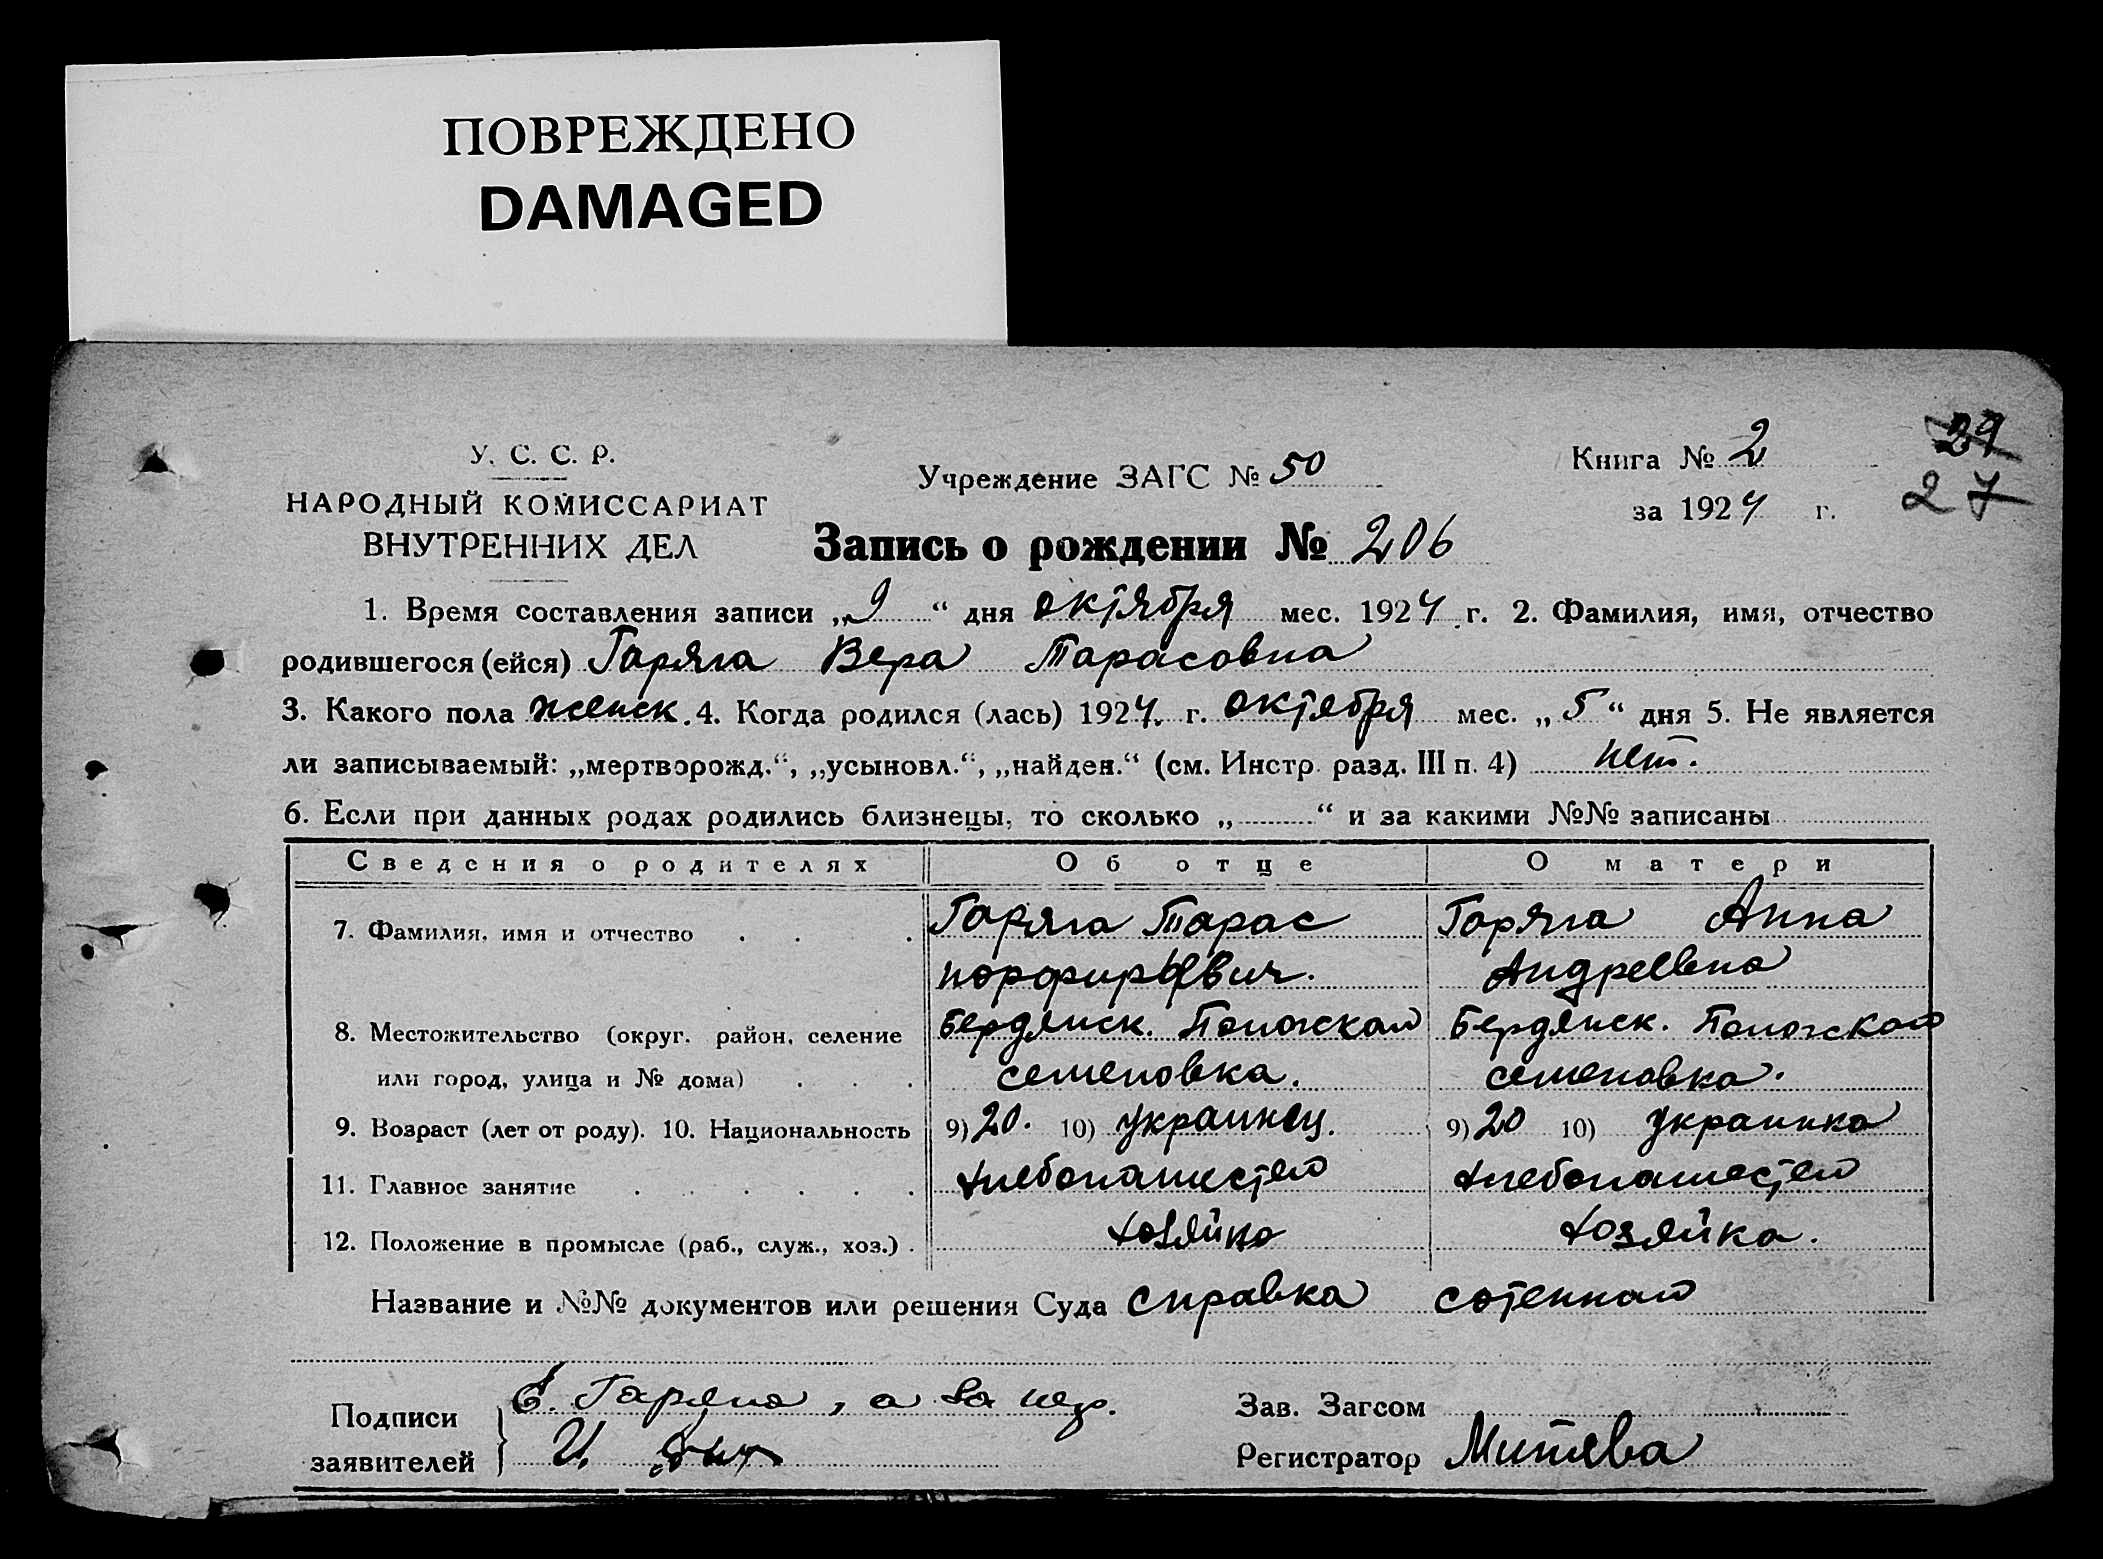 ПОВРЕЖДЕНО
DAMAGED
У. С. С. Р.
НАРОДНЫЙ КОМИССАРИАТ
ВНУТРЕННИХ ДЕЛ
Учреждение ЗАГС № 50
Книга № 2
за 1924 г.
27
Запись о рождении № 206
1. Время составления записи „9“ дня октября мес. 1924 г. 2. Фамилия, имя, отчество
родившегося (ейся) Гаряга Вера Тарасовна
3. Какого пола женск. 4. Когда родился (лась) 1924 г. октября мес. „5“ дня 5. Не является
ли записываемый: „мертворожд.“, „усыновл.“, „найден.“ (см. Инстр. разд. III п. 4) нет.
6. Если при данных родах родились близнецы, то сколько „ “ и за какими №№ записаны
Сведения о родителях Об отце О матери
7. Фамилия, имя и отчество . . . Гаряга Тарас Гаряга Анна
порфирьевич. Андреевна
8. Местожительство (округ, район, селение Бердянск. Пологская Бердянск. Пологская
или город, улица и № дома) . . . семеновка. семеновка.
9. Возраст (лет от роду). 10. Национальность 9) 20. 10) украинец. 9) 20 10) украинка
11. Главное занятие . . . . . . хлебопашеством хлебопашеством
12. Положение в промысле (раб., служ., хоз.) . хозяин хозяйка.
Название и №№ документов или решения Суда справка сотенного
Подписи Гаряга, а за нег.
заявителей И.
Зав. Загсом
Регистратор Митева